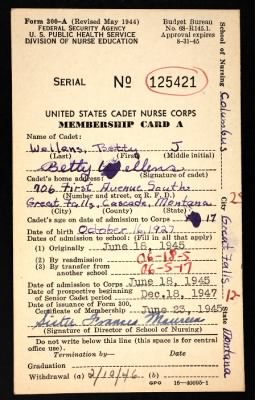 Form 300-A (Revised May 1944)
Federal Security Agency
U. S. PUBLIC HEALTH SERVICE
DIVISION OF NURSE EDUCATION
Budget Bureau
No. 68-R145.1.
Approval expires
8-31-45
SERIAL No 125421
UNITED STATES CADET NURSE CORPS
MEMBERSHIP CARD A
Name of Cadet:
Wellens, Betty J
(Last) (First) (Middle initial)
Betty Wellens
(Signature of cadet)
Cadet's home address:
906 First Avenue South
(Number and street, or R. F. D.)
Great Falls, Cascade, Montana
(City) (County) (State)
Cadet's age on date of admission to Corps 17
Date of birth October 16, 1927
Dates of admission to school: (Fill in all that apply)
(1) Originally June 18, 1945
(2) By readmission 06-18-5
(3) By transfer from another school 06-5-17
Date of admission to Corps June 18, 1945
Date of prospective beginning of Senior Cadet period Dec. 18, 1947
Date of issuance of Form 300, Certificate of Membership June 23, 1945
Sister Frances Maureen
(Signature of Director of School of Nursing)
Do not write below this line (this space is for central office use).
Termination by— Date
Graduation
Withdrawal (a) 2/10/46 (b)
GPO 16—40095-1
School of Nursing Columbus
City Great Falls
State Montana
12